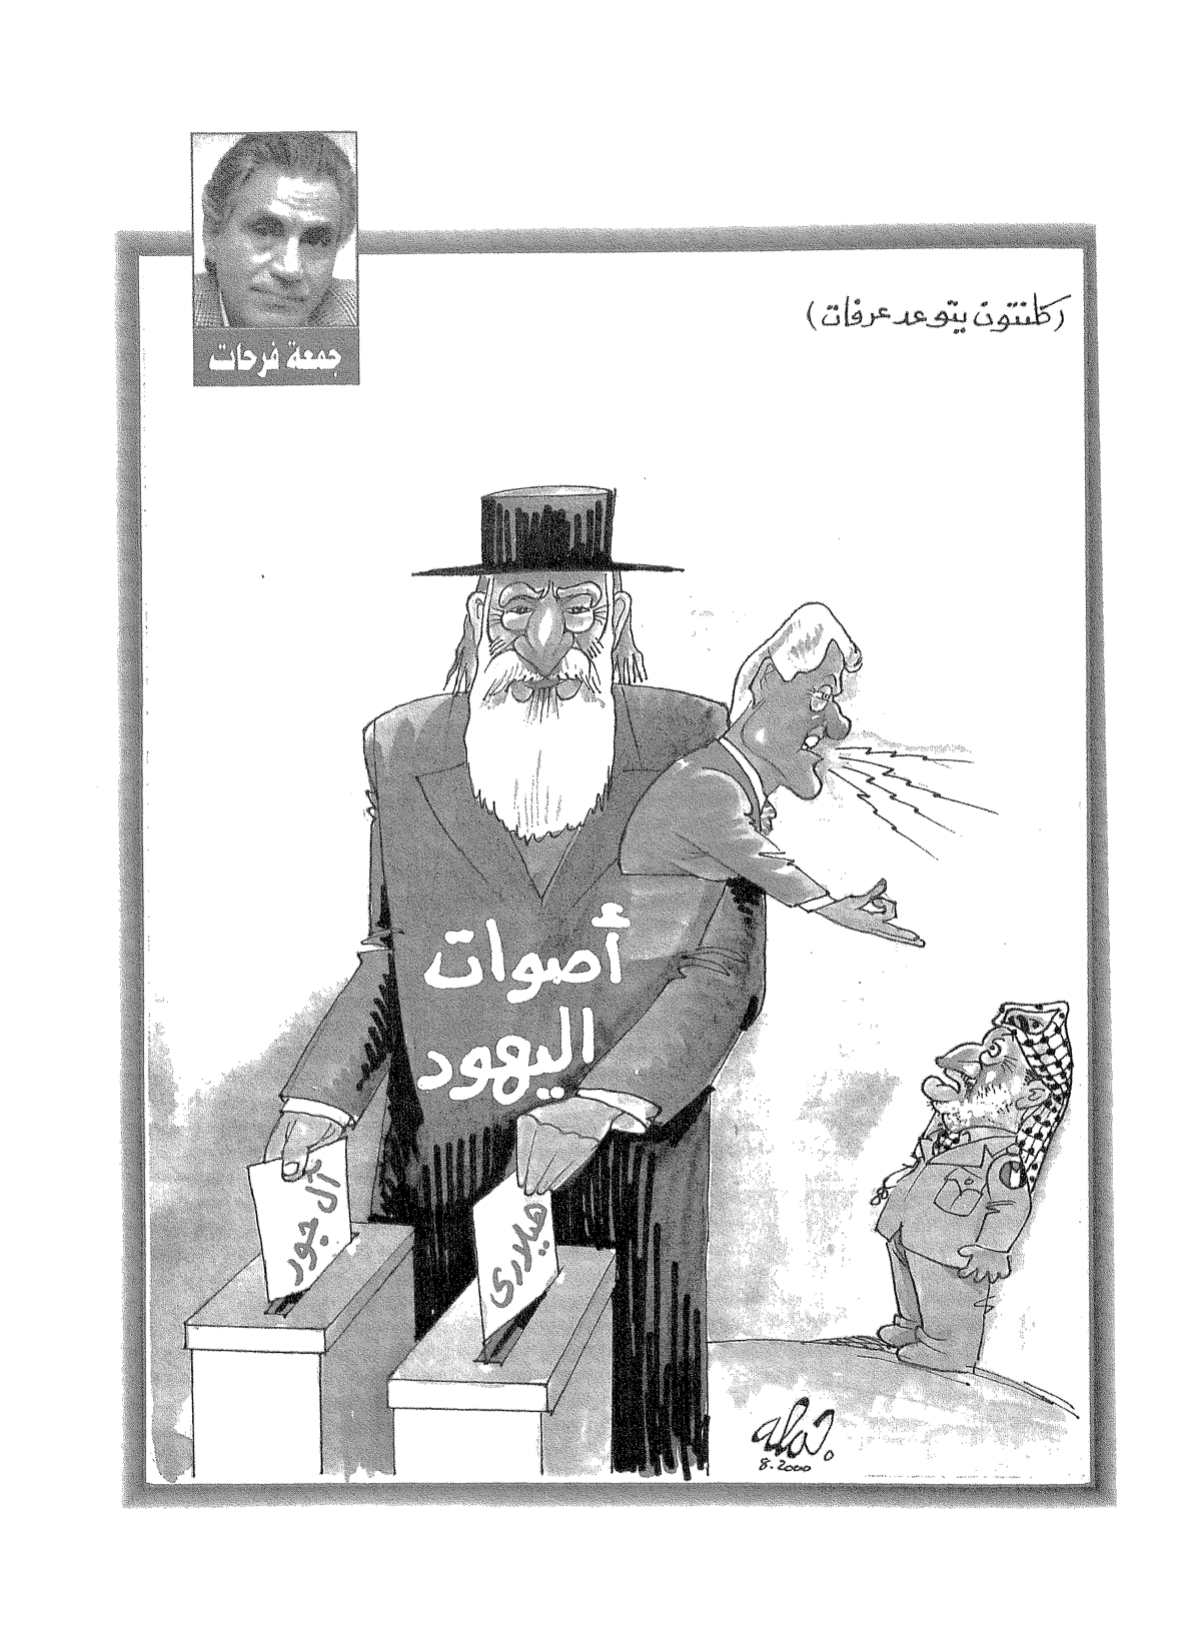 جمعة فرحات
(كلنتون يتوعد عرفات)
أصوات
اليهود
آل جور
هيلارى
8.2000